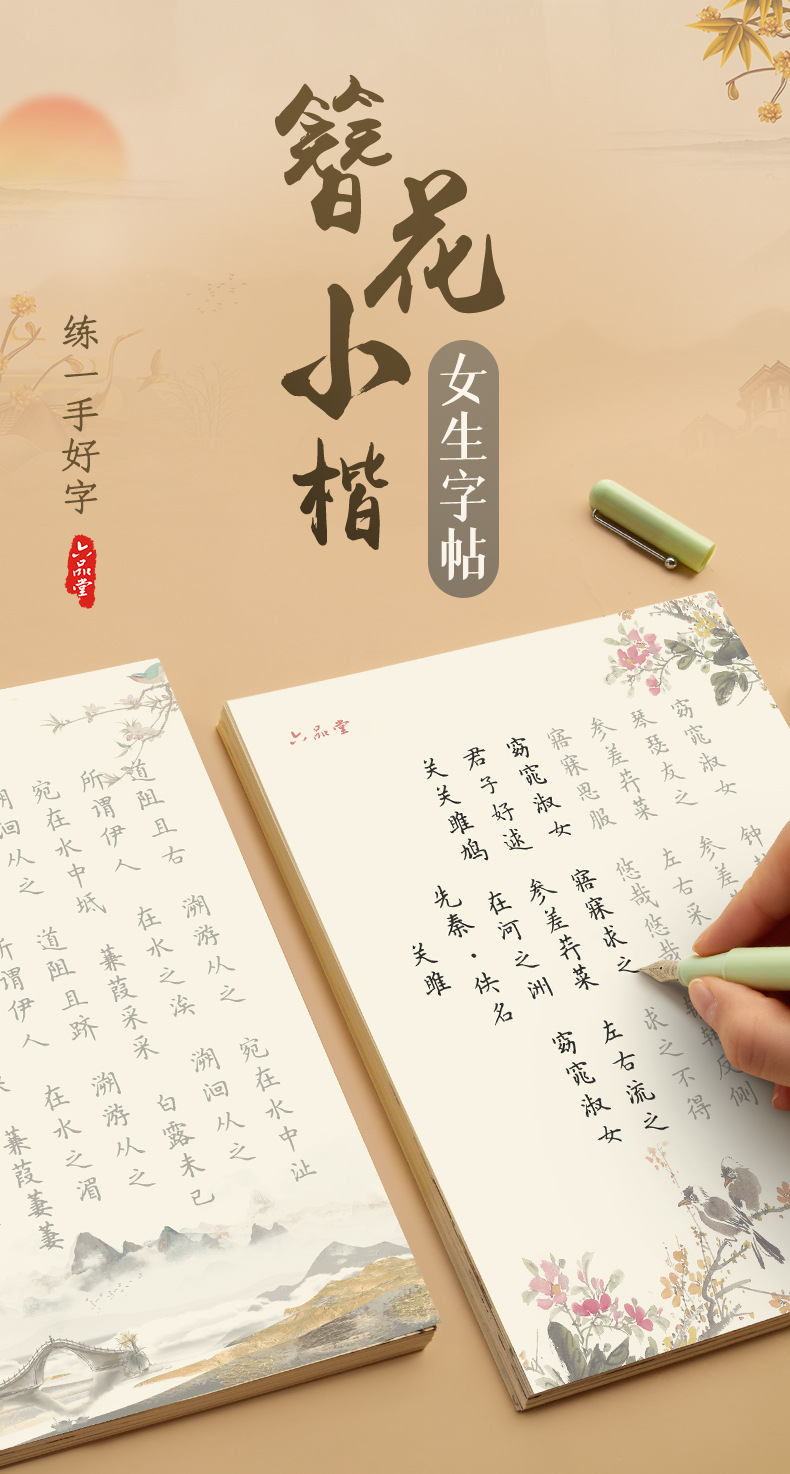 簪花小楷
女生字帖
练一手好字
六品堂
六品堂
关雎
先秦·佚名
关关雎鸠 在河之洲 窈窕淑女
君子好逑 参差荇菜 左右流之
窈窕淑女 寤寐求之 求之不得
寤寐思服 悠哉悠哉 转反侧
参差荇菜 左右采
琴瑟友之 参差
窈窕淑女 钟
蒹葭萋萋
所谓伊人 在水之湄
洄从之 道阻且跻 溯游从之
宛在水中坻 蒹葭采采 白露未已
所谓伊人 在水之涘 溯洄从之
道阻且右 溯游从之 宛在水中沚